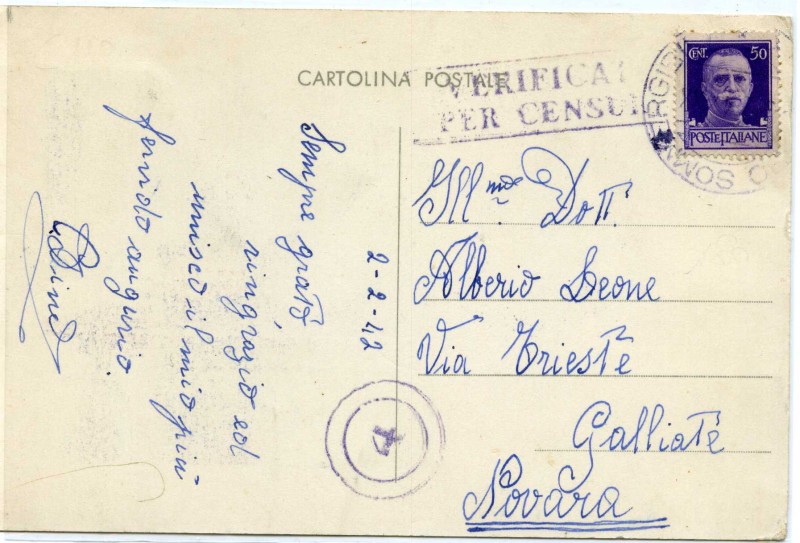 CARTOLINA POSTALE
VERIFICAT
PER CENSU
CENT. 50
POSTE ITALIANE
SOMM
ERGIBI
2-2-42
Sempre grato
ringrazio ed
unisco il mio più
fervido augurio
Ill.mo Dott.
Alberto Leone
Via Trieste
Galliate
Novara